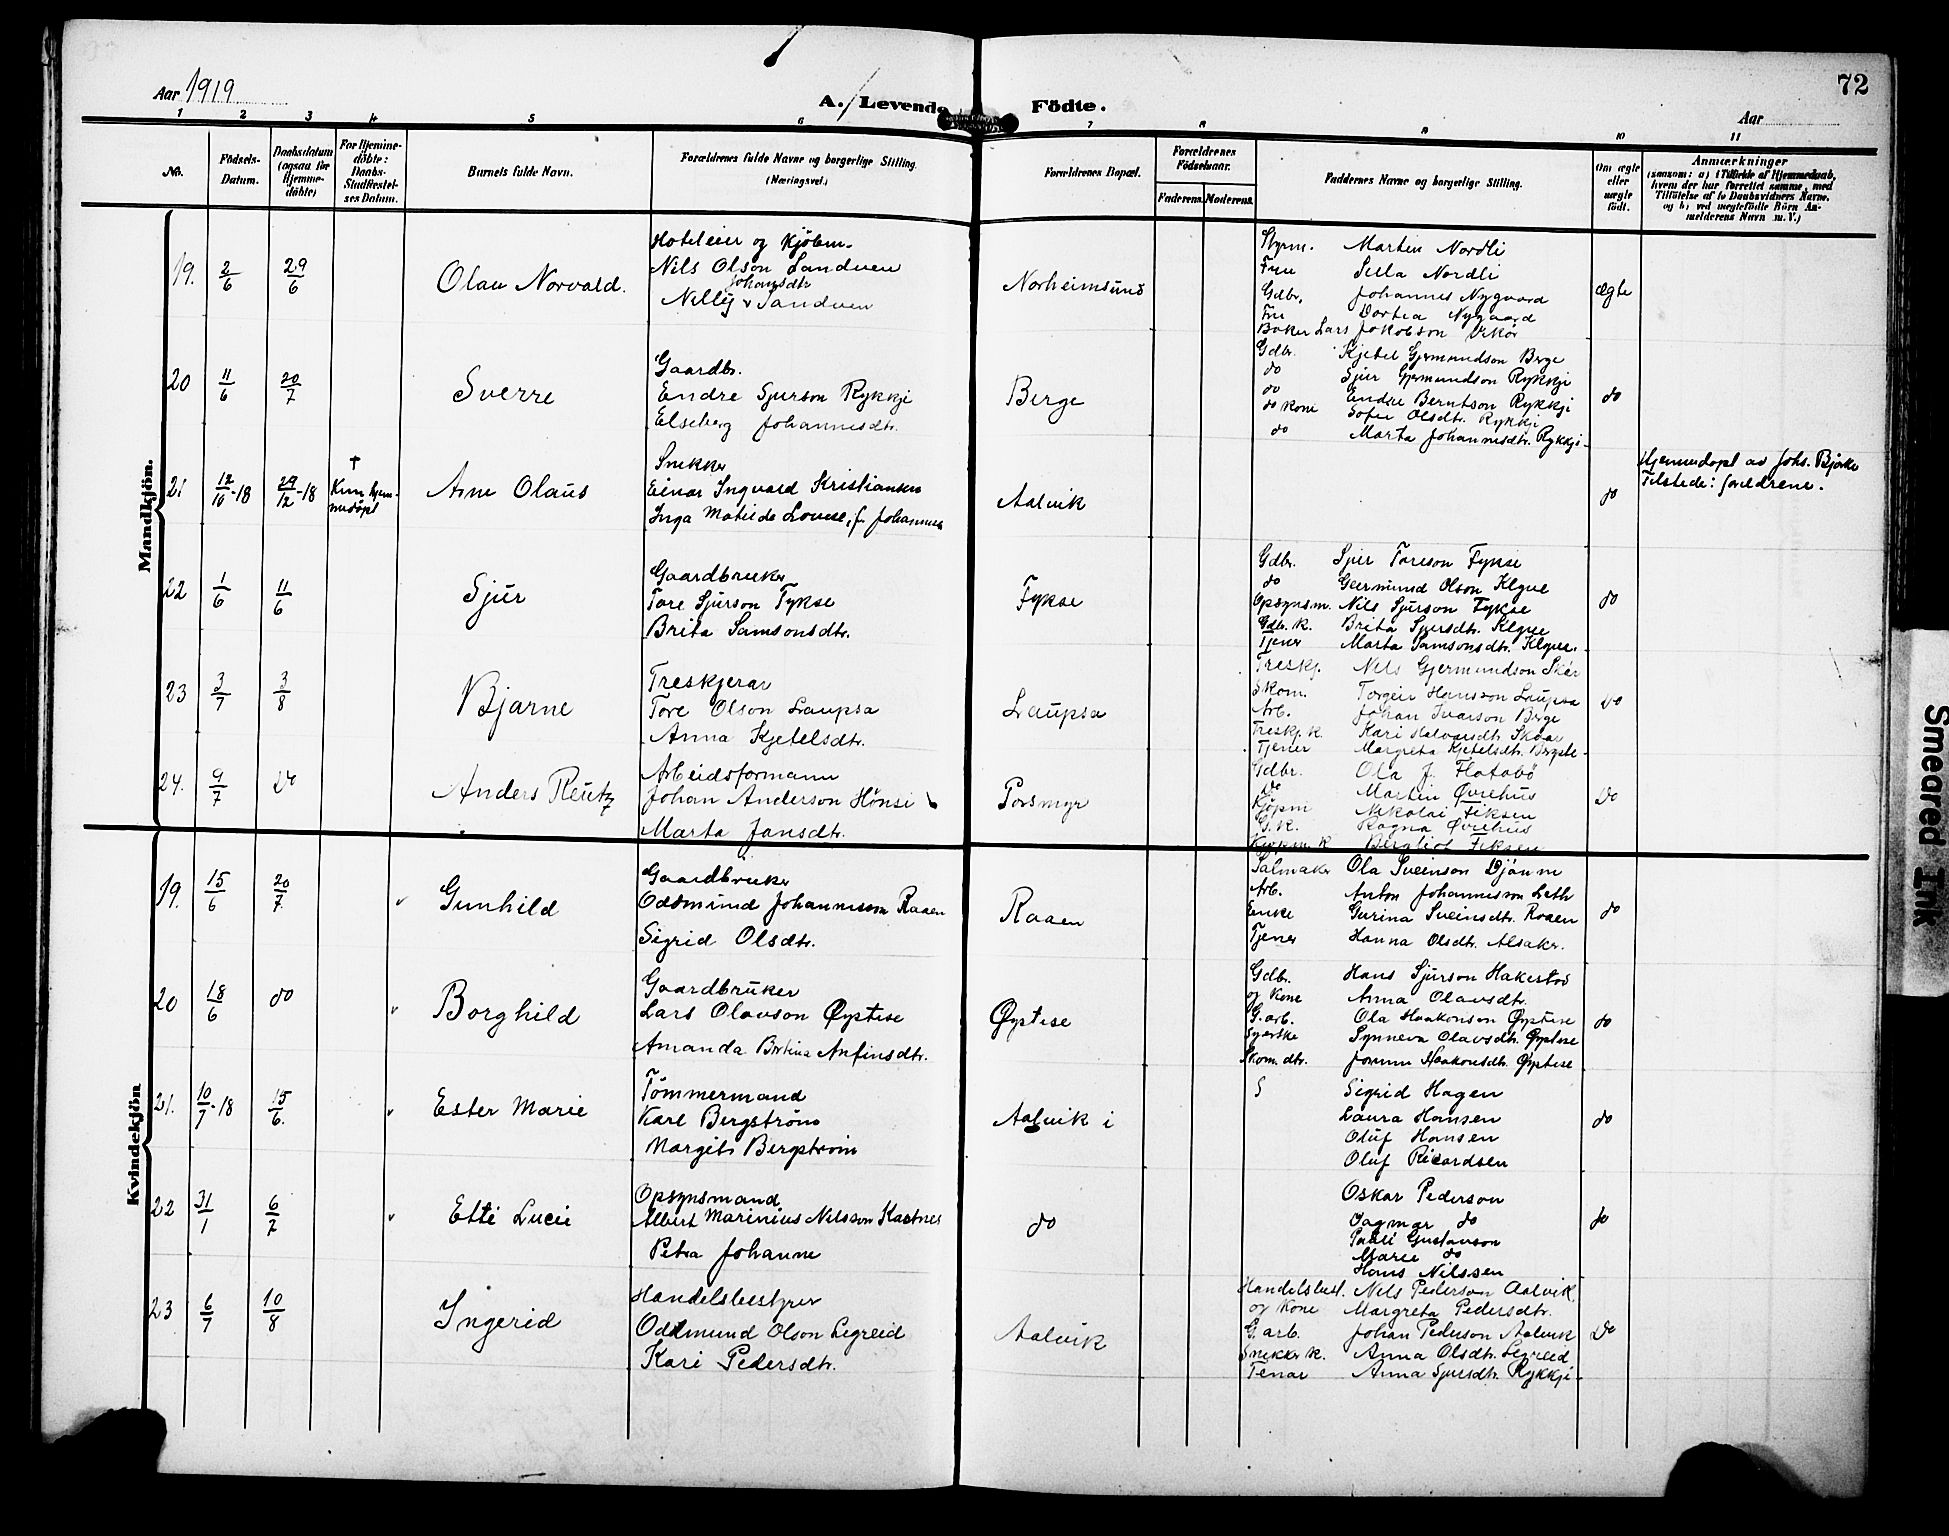 72
Aar 1919
A. Levende Födte.
Aar
1 2 3 4 5 6 7 8 9 10 11
No.
Födsels-
Datum.
Daabsdatum
(ogsaa for
Hjemme-
döbte)
For Hjemme-
döbte:
Daabs-
Stadfæstel-
ses Datum.
Barnets fulde Navn.
Forældrenes fulde Navne og borgerlige Stilling.
(Næringsvei.)
Forældrenes Bopæl.
Forældrenes
Födselsaar.
Faderens. Moderens.
Faddernes Navne og borgerlige Stilling.
Om ægte
eller
uægte
födt.
Anmærkninger
(saasom: a) i Tilfælde af Hjemmedaab,
hvem der har forrettet samme, med
Tilföielse af to Daabsvidners Navne.
og b) ved uægtefödte Börn An-
melderens Navn m. V.)
Mandkjön.
19. 2/6 29/6
Olav Norvald.
Hoteleier og Kjöbm.
Nils Olson Sandven
Johansdtr
Nelly Sandven
Norheimsund
Styrm. Martin Nordli
Fru Sella Nordli
Gdbr. Johannes Nygaard
Fru Dortea Nygaard
Baker Lars Jakobson Vikör
ægte
20 11/6 20/7
Sverre
Gaardbr.
Endre Sjurson Rykkje
Elseberg Johannesdtr.
Berge
Gdbr. Kjetel Gjermundson Berge
do Sjur Gjermundson Rykkje
do Endre Berntson Rykkje
do kone Sofie Olsdtr. Rykkje
do Marta Johannesdtr. Rykkje
do
21 12/10-18 29/12-18
†
Kun hjem-
medöpt
Arne Olaus
Snekker
Einar Ingvard Kristiansen
Inga Matilde Lovise, f. Johannesen
Aalvik
do
Hjemmedöpt av Johs. Bjerke
Tilstede: foreldrene.
22 1/6 11/6
Sjur
Gaardbruker
Tore Sjurson Fykse
Brita Samsonsdtr.
Fykse
Gdbr. Sjur Toreson Fykse
do Geermund Olson Klyve
Opsynsm. Nils Sjurson Fykse
Gdbr. K. Brita Sjursdtr. Klyve
Tjener Marta Samsonsdtr. Klyve.
do
23 3/7 3/8
Bjarne
Treskjerar
Tore Olson Laupsa
Anna Kjetelsdtr.
Laupsa
Treskj. Nils Gjermundson Skår
Skom. Torgeir Hansson Laupsa
Arb. Johan Ivarson Berge
Treskj. K. Kari Halvorsdtr. Skaar
Tjener Margreta Kjetelsdtr.
do
24. 9/7 do
Anders Reutz
Arbeidsformann
Johan Anderson Hönsi
Marta Jansdtr.
Porsmyr
Gdbr. Ola J. Flotabö
do Martin Øvrehus
Kjöpm Nikolai Fiksen
G.K. Ragna Øvrehus
Kjöpm. K Bergliot Fiksen
do
Kvindekjön
19. 15/6 20/7
Gunhild
Gaardbruker
Oddmund Johannesson Raaen
Sigrid Olsdtr.
Raaen
Salmaker Ola Sveinson Bjönne
Arb. Anton Johannesson
Enke Gurina Sveinsdtr. Raaen
Tjener Hanna Olsdtr. Alsaker.
do
20 18/6 do
Borghild
Gaardbruker
Lars Olavson Øystese
Amanda Bertina Anfinsdtr.
Øystese
Gdbr. Hans Sjurson Hakestad
og Kone Anna Olavsdtr.
G.arb. Ola Haakonson Øystese
Syerske Synneva Olavsdtr. Øystese
Skom. dtr. Jorunn Haakonsdtr. Øystese
do
21. 10/7-18 15/6
Ester Marie
Tömmermand
Karl Bergström
Margit Bergström
Aalvik i
S Sigrid Hagen
Laura Hansen
Oluf Hansen
Oluf Ricardsen
do
22 31/1 6/7
Etti Lucie
Opsynsmand
Albert Marinius Nilsson
Petra Johanne
do
Oskar Pederson
Dagmar do
Pauli Gustavson
Marie do
Hans Nilssen
do
23 6/7 10/8
Ingerid
Handelsbestyrer
Oddmund Olson Legreid
Kari Pedersdtr.
Aalvik
Handelsbest. Nils Pederson Aalvik
og Kone Margreta Pedersdtr.
G.arb. Johan Pederson Aalvik
Snekker K. Anna Olsdtr. Legreid
Tenar Anna Sjursdtr. Rykkje
do
Smeared Ink